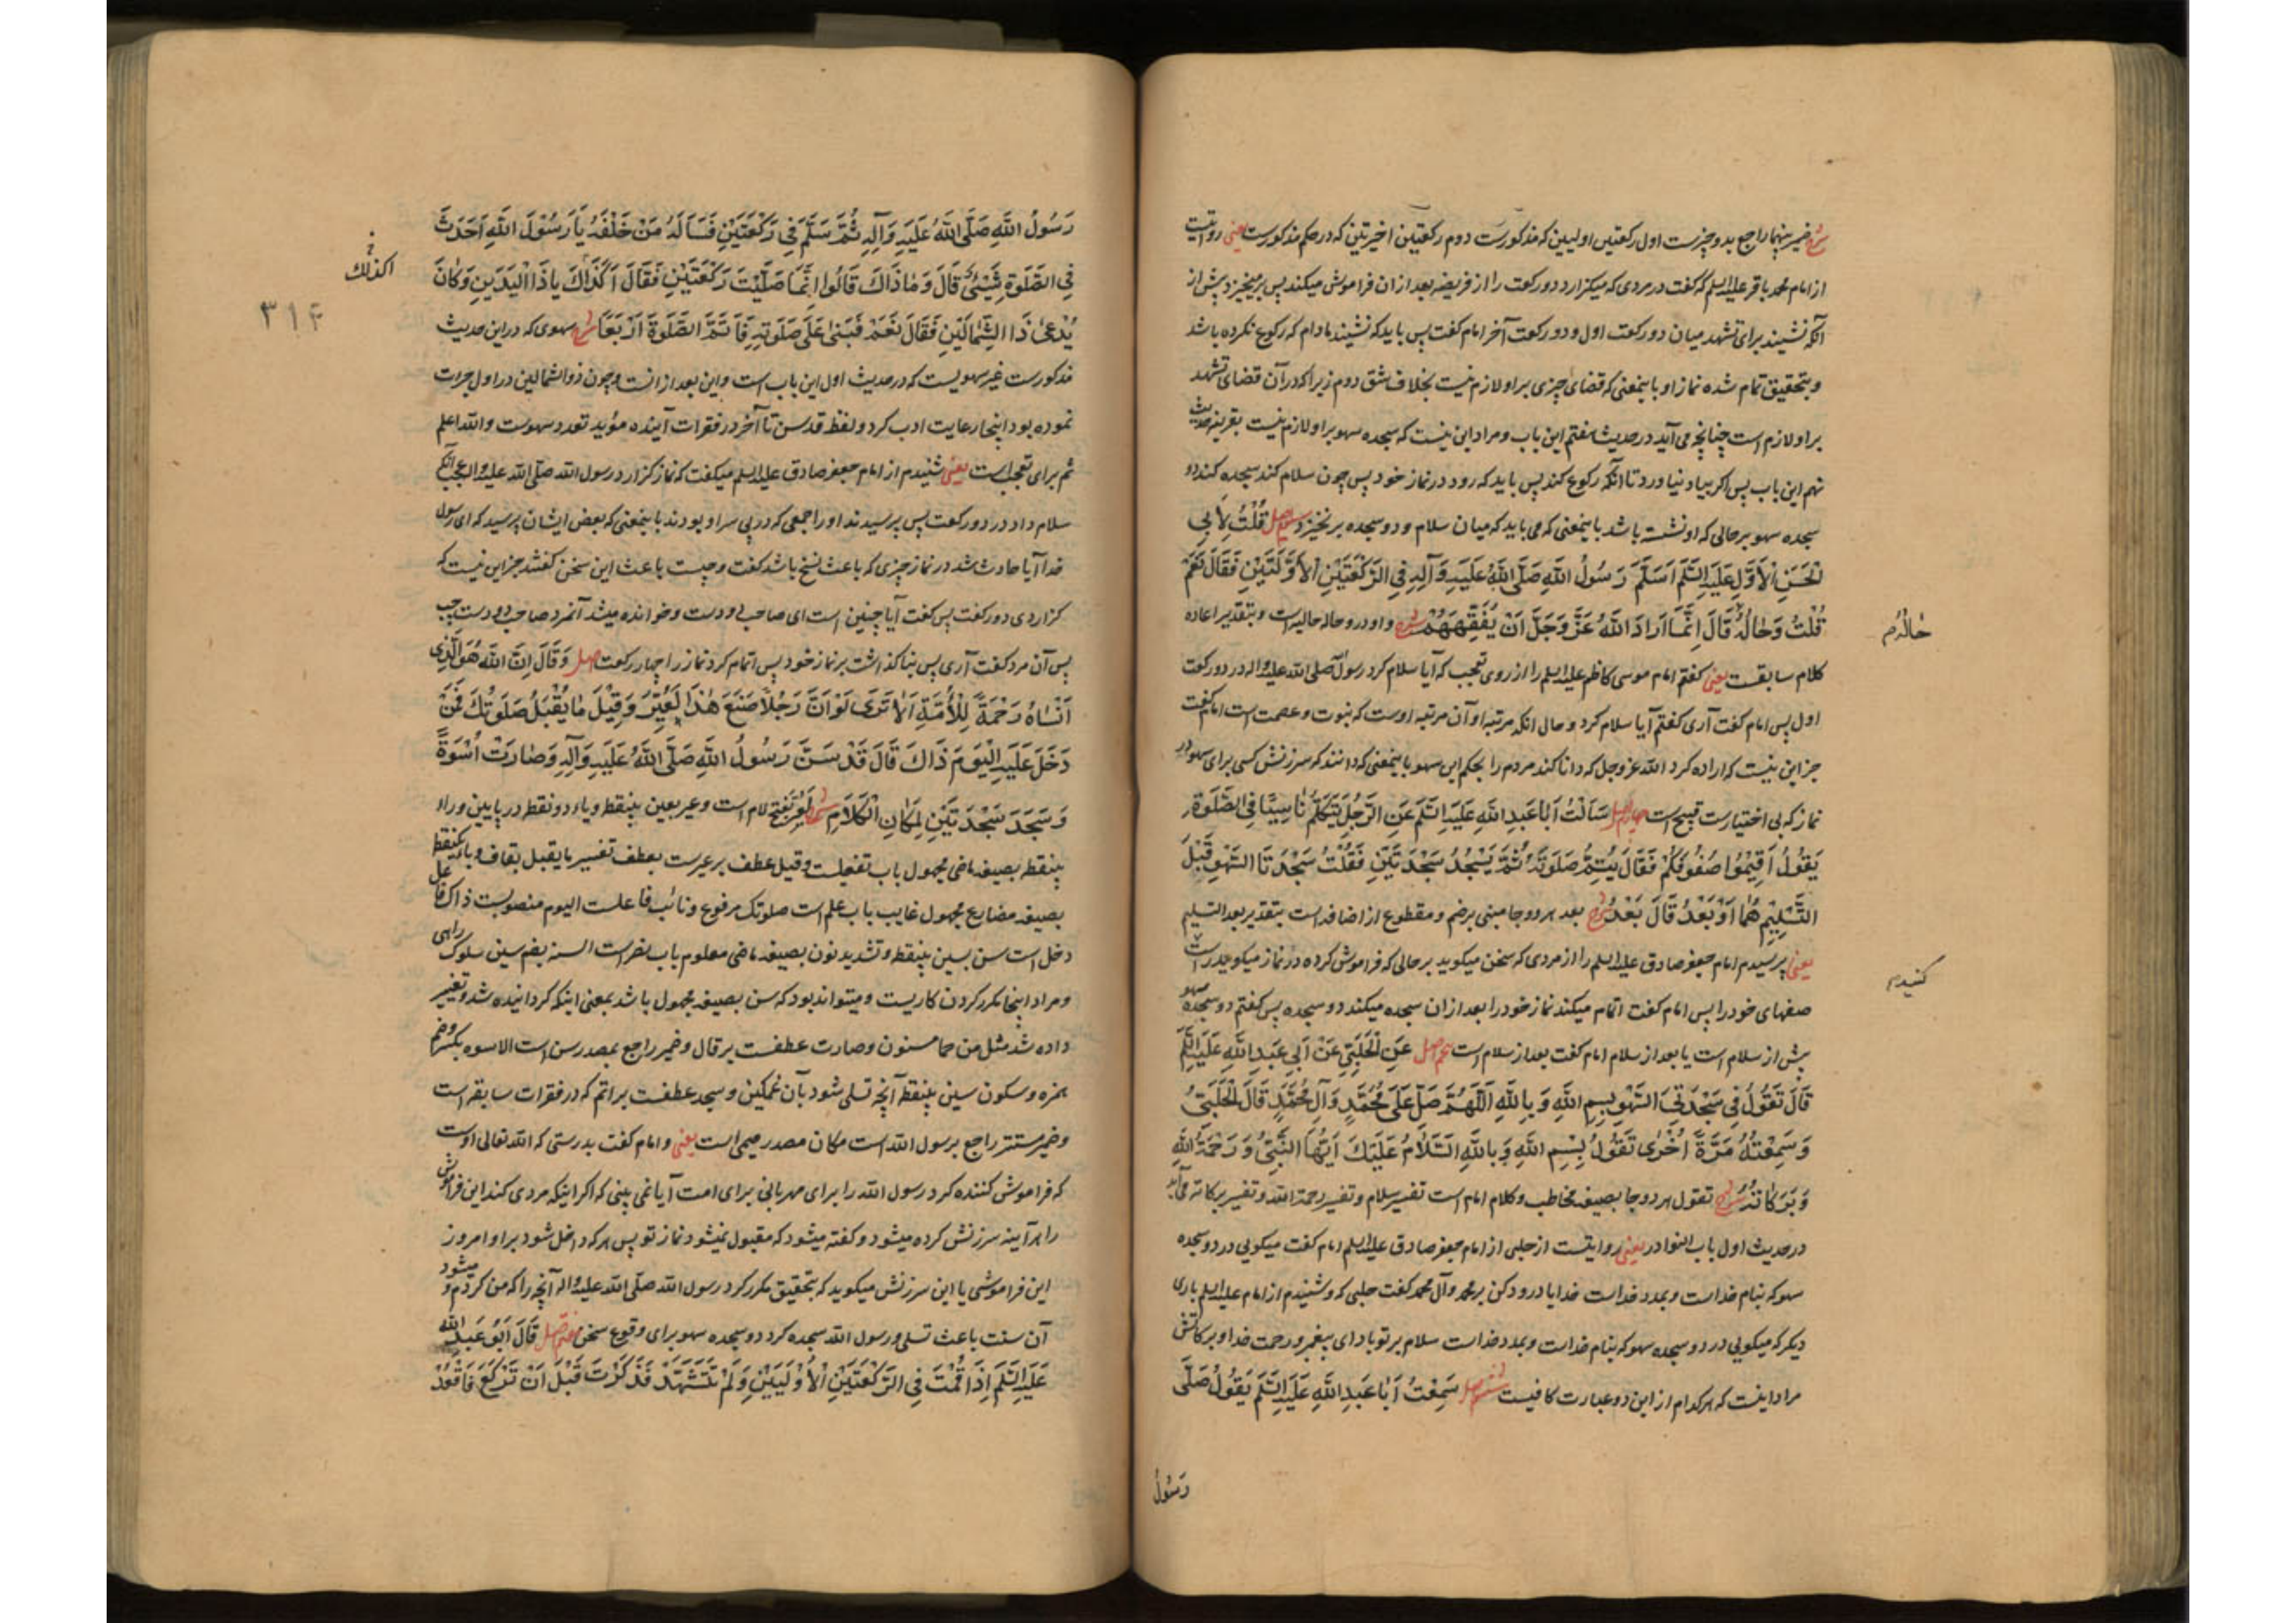 شرح ضمیر بینهما راجع بدو چیزست اول رکعتین اولیین که مذکورست دوم رکعتین اخیرتین که در حکم مذکورست یعنی روایتست
از امام محمد باقر علیه السلم که گفت در مردی که میگزارد دو رکعت را از فریضه بعد از ان فراموش میکند پس برمیخیزد پیش از
آنکه نشیند برای تشهد میان دو رکعت اول و دو رکعت آخر امام گفت پس باید که نشیند مادام که رکوع نکرده باشد
و بتحقیق تمام شده نماز او باینمعنی که قضای چیزی بر او لازم نیست بخلاف شق دوم زیرا که در آن قضای تشهد
بر او لازم است چنانچه می آید در حدیث هفتم این باب و مراد این نیست که سجده سهو بر او لازم نیست بقرینه حدیث
نهم این باب پس اکر بیاد نیاورد تا انکه رکوع کند پس باید که رود در نماز خود پس چون سلام کند سجده کند دو
سجده سهو بر حالی که او نشسته باشد باینمعنی که می باید که میان سلام و دو سجده برنخیزد سیم اصل قُلْتُ لِأَبِی
الْحَسَنِ الْأَوَّلِ عَلَیْهِ السَّلَمُ أَسَلَّمَ رَسُولُ اللّٰهِ صَلَّی اللّٰهُ عَلَیْهِ وَآلِهِ فِی الرَّکْعَتَیْنِ الْأَوَّلَتَیْنِ فَقَالَ نَعَمْ
قُلْتُ وَحَالُهُ قَالَ إِنَّمَا أَرَادَ اللّٰهُ عَزَّ وَجَلَّ أَنْ یُفَقِّهَهُمْ شرح واو در و حاله حالیه است و بتقدیر اعاده
حَالُهُ م
کلام سابقست یعنی گفتم امام موسی کاظم علیه السلم را از روی تعجب که آیا سلام کرد رسول صلی الله علیه واله در دو رکعت
اول پس امام گفت آری گفتم آیا سلام کرد و حالی انکه مرتبه او آن مرتبه اوست که نبوت و عصمت است امام گفت
جز این نیست که اراده کرد الله عز وجل که دانا کند مردم را بحکم این سهو باینمعنی که دانند که سرزنش کسی برای سهو در
نماز که بی اختیارست قبیح است چهارم اصل سَأَلْتُ أَبَا عَبْدِ اللّٰهِ عَلَیْهِ السَّلَمُ عَنِ الرَّجُلِ یَتَکَلَّمُ نَاسِیًا فِی الصَّلَوةِ
یَقُولُ أَقِیمُوا صُفُوفَکُمْ فَقَالَ یُتِمُّ صَلَوتَهُ ثُمَّ یَسْجُدُ سَجْدَتَیْنِ فَقُلْتُ سَجْدَتَا السَّهْوِ قَبْلَ
التَّسْلِیمِ هُمَا أَوْ بَعْدُ قَالَ بَعْدُ شرح بعد هر دو جا مبنی برضم و مقطوع از اضافه است بتقدیر بعد التسلیم
یعنی پرسیدم امام جعفر صادق علیه السلم را از مردی که سخن میکوید بر حالی که فراموش کرده در نماز میکوید راست
کنید م
صفهای خود را پس امام کفت اتمام میکند نماز خود را بعد از ان سجده میکند دو سجده پس کفتم دو سجده سهو
پیش از سلام است یا بعد از سلام امام کفت بعد از سلام است پنجم اصل عَنِ الْحَلَبِیِّ عَنْ أَبِی عَبْدِ اللّٰهِ عَلَیْهِ السَّلَمُ
قَالَ تَقُولُ فِی سَجْدَتَیِ السَّهْوِ بِسْمِ اللّٰهِ وَبِاللّٰهِ اَللّٰهُمَّ صَلِّ عَلَی مُحَمَّدٍ وَآلِ مُحَمَّدٍ قَالَ الْحَلَبِیُّ
وَسَمِعْتُهُ مَرَّةً أُخْرَی تَقُولُ بِسْمِ اللّٰهِ وَبِاللّٰهِ السَّلَامُ عَلَیْکَ أَیُّهَا النَّبِیُّ وَرَحْمَةُ اللّٰهِ
وَبَرَکَاتُهُ شرح تقول هر دو جا بصیغه مخاطب و کلام امام است تفسیر سلام و تفسیر رحمة الله و تفسیر برکاته می آید
در حدیث اول باب النوادر یعنی روایتست از حلبی از امام جعفر صادق علیه السلم امام کفت میکویی در دو سجده
سهو که بنام خداست و بمدد خداست خدایا درود کن بر محمد و آل محمد کفت حلبی که و شنیدم از امام علیه السلم باری
دیکر که میکویی در دو سجده سهو که بنام خداست و بمدد خداست سلام بر تو باد ای پیغمبر و رحمت خدا و برکاتش
مراد اینست که هر کدام از این دو عبارت کافیست ششم اصل سَمِعْتُ أَبَا عَبْدِ اللّٰهِ عَلَیْهِ السَّلَمُ یَقُولُ صَلَّی
رَسُولُ
رَسُولُ اللّٰهِ صَلَّی اللّٰهُ عَلَیْهِ وَآلِهِ ثُمَّ سَلَّمَ فِی رَکْعَتَیْنِ فَسَأَلَهُ مَنْ خَلْفَهُ یَا رَسُولَ اللّٰهِ أَحَدَثَ
فِی الصَّلَوةِ شَیْئٌ قَالَ وَمَا ذَاکَ قَالُوا إِنَّمَا صَلَّیْتَ رَکْعَتَیْنِ فَقَالَ أَکَذَاکَ یَا ذَا الْیَدَیْنِ وَکَانَ
اکذلك
٣١٤
یُدْعَی ذَا الشِّمَالَیْنِ فَقَالَ نَعَمْ فَبَنَی عَلَی صَلَوتِهِ فَأَتَمَّ الصَّلَوةَ أَرْبَعًا شرح سهوی که در این حدیث
مذکورست غیر سهویست که در حدیث اول این باب است و این بعد از انست و چون ذو الشمالین در اول جرات
نموده بود اینجا رعایت ادب کرد و لفظ قد سن تا آخر در فقرات آینده مؤید تعدد سهوست والله اعلم
ثم برای تعجب است یعنی شنیدم از امام جعفر صادق علیه السلم میکفت که نماز کزارد رسول الله صلی الله علیه واله عجب انکه
سلام داد در دو رکعت پس پرسیدند او را جمعی که در پی سر او بودند باینمعنی که بعض ایشان پرسید که ای رسول
خدا آیا حادث شد در نماز چیزی که باعث نسخ باشد کفت و چیست باعث این سخن کفتند جز این نیست که
کزاردی دو رکعت پس کفت آیا چنین است ای صاحب دو دست و خوانده میشد آنمرد صاحب دو دست چپ
پس آن مرد کفت آری پس بنا کذاشت بر نماز خود پس اتمام کرد نماز را چهار رکعت اصل وَقَالَ إِنَّ اللّٰهَ هُوَ الَّذِی
أَنْسَاهُ رَحْمَةً لِلْأُمَّةِ أَلَا تَرَی لَوْ أَنَّ رَجُلًا صَنَعَ هٰذَا لَعُیِّرَ وَقِیلَ مَا یُقْبَلُ صَلَوتُکَ فَمَنْ
دَخَلَ عَلَیْهِ الْیَوْمَ ذَاکَ قَالَ قَدْ سَنَّ رَسُولُ اللّٰهِ صَلَّی اللّٰهُ عَلَیْهِ وَآلِهِ وَصَارَتْ أُسْوَةً
وَسَجَدَ سَجْدَتَیْنِ لِمَکَانِ الْکَلَامِ شرح لعیر بفتح لام است و عیر بعین بینقطه و یاء دو نقطه در پایین و راء
بینقطه بصیغه ماضی مجهول باب تفعیلست و قیل عطف بر عیرست بعطف تفسیر ما یقبل بقاف و باء یکنقطه
بصیغه مضارع مجهول غایب باب علم است صلوتک مرفوع و نائب فاعلست الیوم منصوبست ذاک فاعل
دخل است سن بسین بینقطه و تشدید نون بصیغه ماضی معلوم باب نصر است السنه بضم سین سلوک راهی
و مراد اینجا مکرر کردن کاریست و میتواند بود که سن بصیغه مجهول باشد بمعنی اینکه کردانیده شد و تغییر
داده شد مثل من حما مسنون و صارت عطفست بر قال و ضمیر راجع بمصدر سن است الاسوه بکسر و ضم
همزه و سکون سین بینقطه آنچه تسلی شود بآن غمکین و سجد عطفست بر اتم که در فقرات سابقه است
و ضمیر مستتر راجع برسول الله است مکان مصدر میمی است یعنی و امام کفت بدرستی که الله تعالی اوست
که فراموش کننده کرد رسول الله را برای مهربانی برای امت آیا نمی بینی که اکر اینکه مردی کند این فراموش
را هر آیینه سرزنش کرده میشود و کفته میشود که مقبول نمیشود نماز تو پس هر که داخل شود بر او امروز
این فراموشی یا این سرزنش میکوید که بتحقیق مکرر کرد رسول الله صلی الله علیه واله آنچه را که من کردم و میشود
آن سنت باعث تسلی و رسول الله سجده کرد دو سجده سهو برای وقوع سخن هفتم اصل قَالَ أَبُو عَبْدِ اللّٰهِ
عَلَیْهِ السَّلَمُ إِذَا قُمْتَ فِی الرَّکْعَتَیْنِ الْأُولَیَیْنِ وَلَمْ تَتَشَهَّدْ فَذَکَرْتَ قَبْلَ أَنْ تَرْکَعَ فَاقْعُدْ